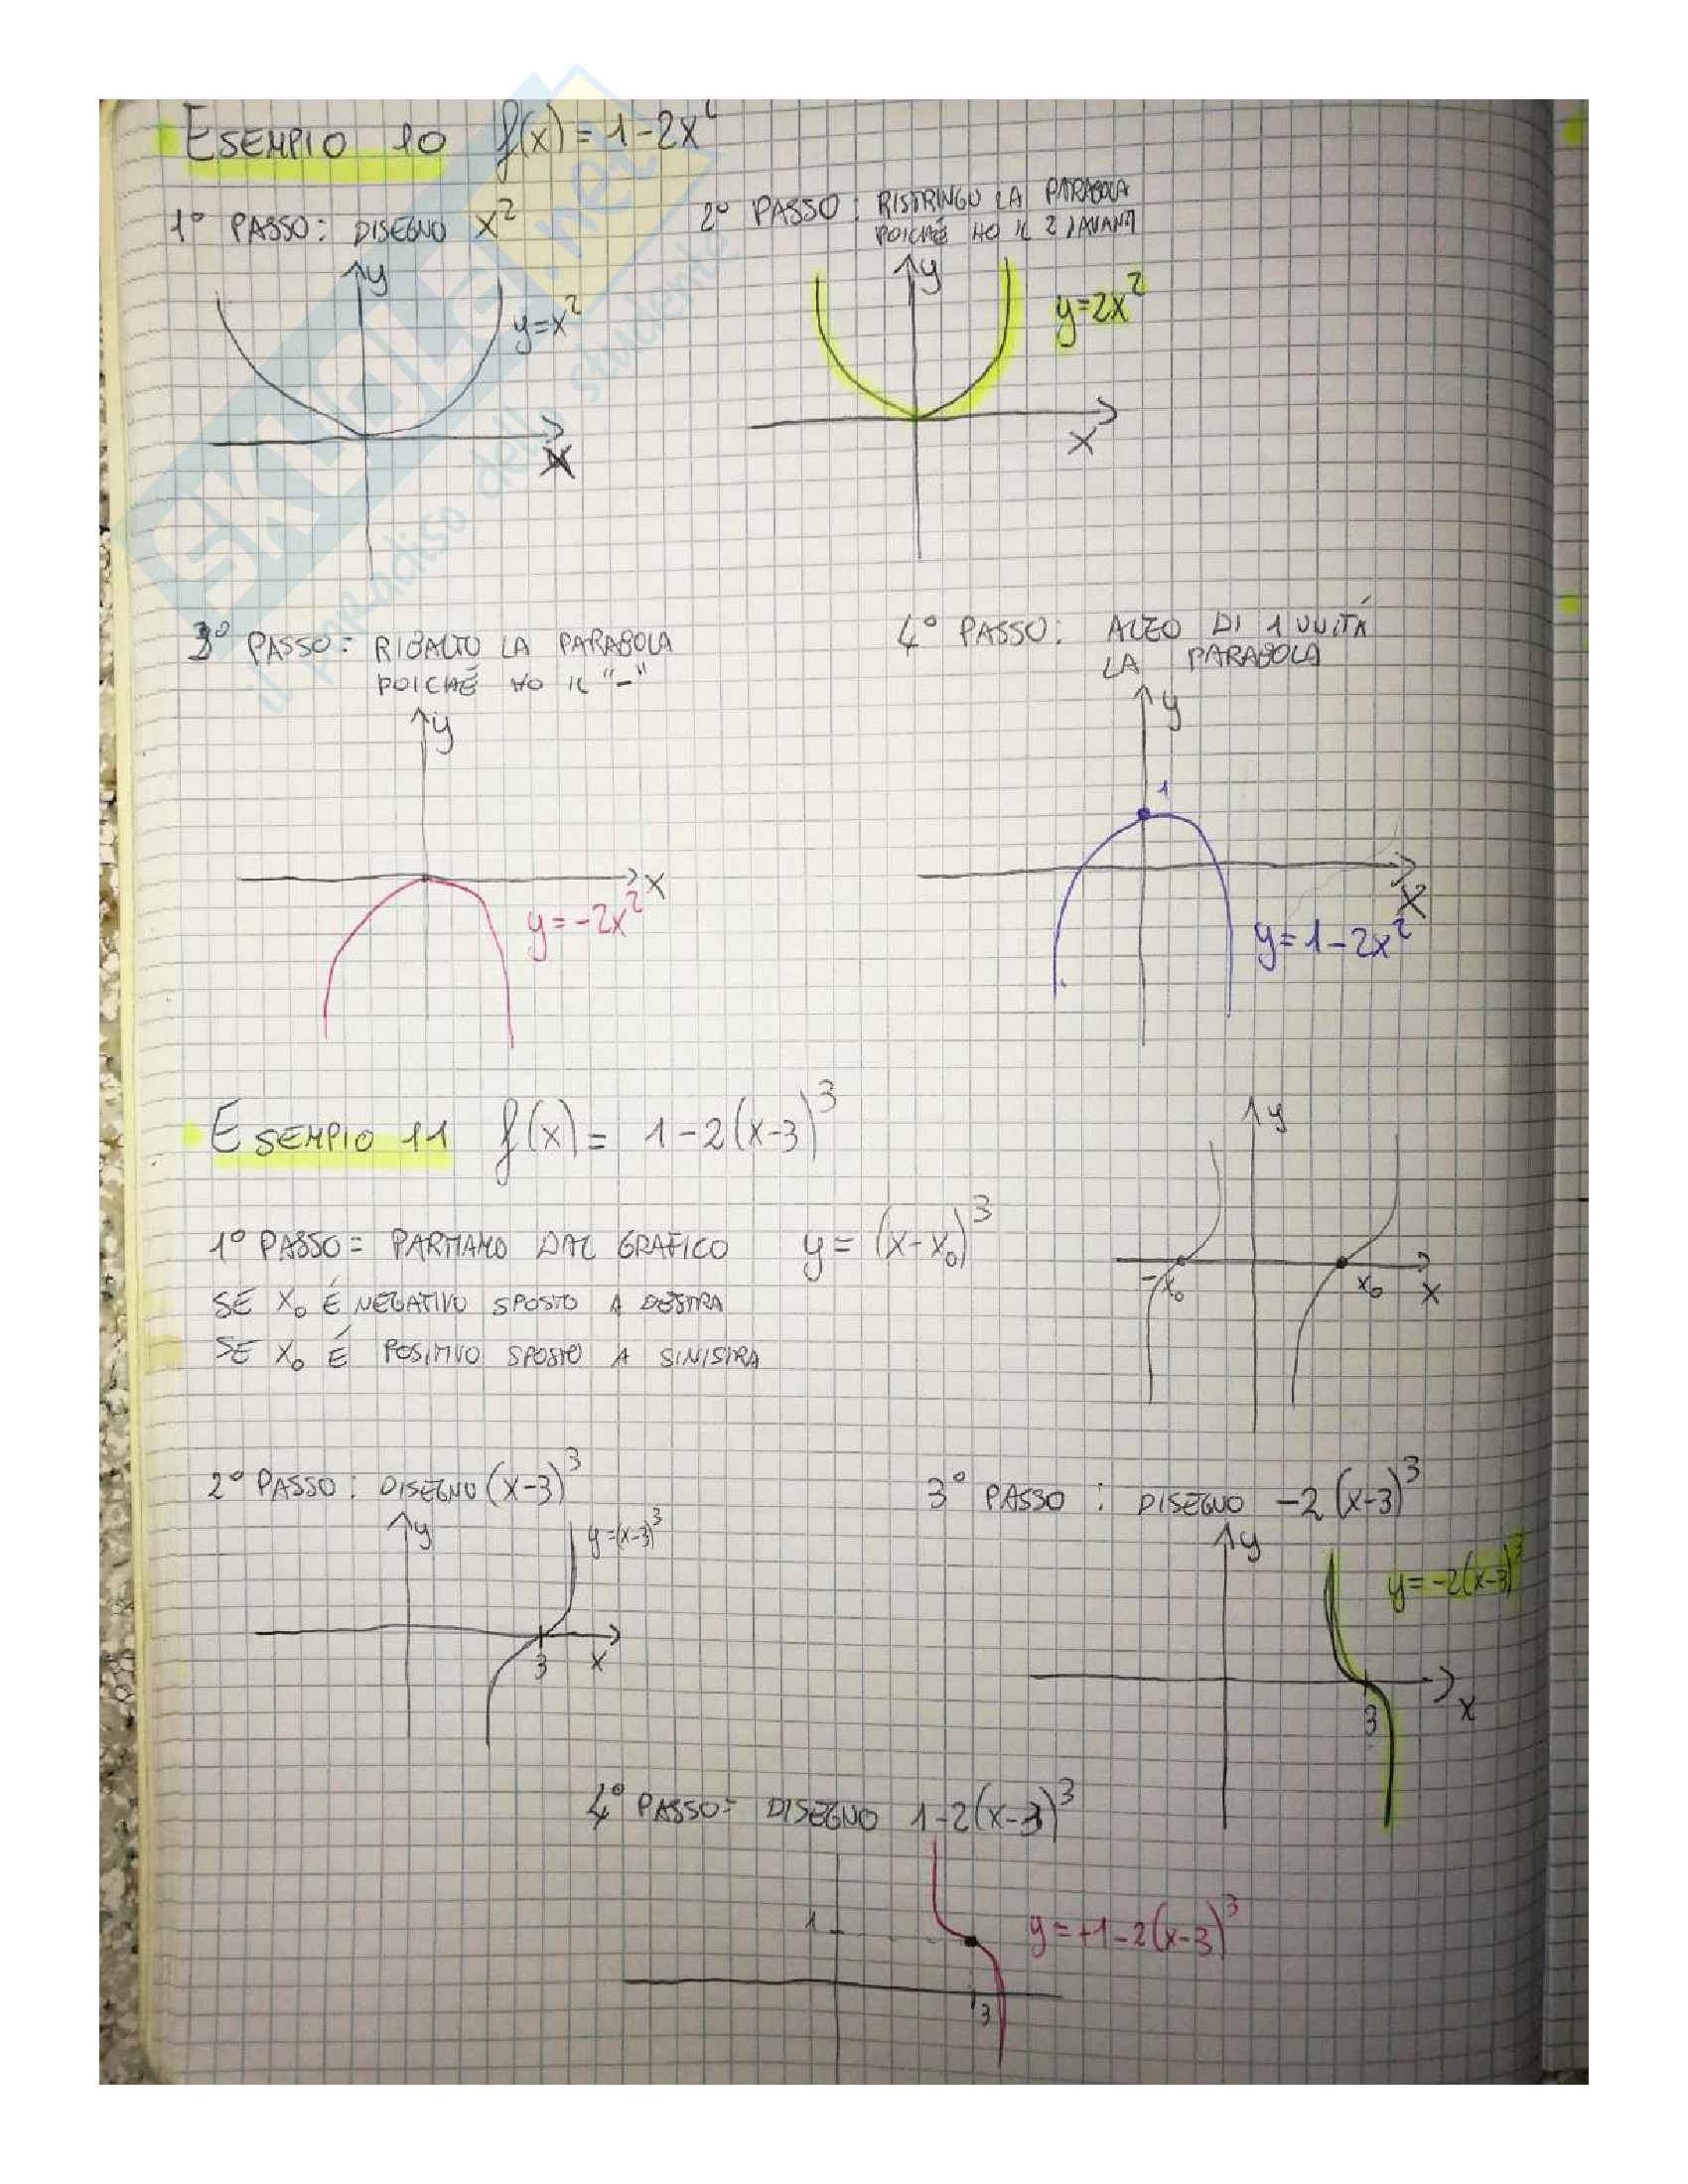 ESEMPIO 10 f(x)=1-2x²
1° PASSO: DISEGNO x²
2° PASSO: RISTRINGO LA PARABOLA
POICHÉ HO IL 2 DAVANTI
y
y=x²
x
y
y=2x²
x
3° PASSO: RIBALTO LA PARABOLA
POICHÉ HO IL "-"
4° PASSO: ALZO DI 1 UNITÁ
LA PARABOLA
y
x
y=-2x²
y
1
x
y=1-2x²
ESEMPIO 11 f(x)= 1-2(x-3)³
y
-x₀
x₀
x
1° PASSO= PARTIAMO DAL GRAFICO y=(x-x₀)³
SE x₀ É NEGATIVO SPOSTO A DESTRA
SE x₀ É POSITIVO SPOSTO A SINISTRA
2° PASSO: DISEGNO (x-3)³
y
y=(x-3)³
3
x
3° PASSO: DISEGNO -2(x-3)³
y
y=-2(x-3)³
3
x
4° PASSO= DISEGNO 1-2(x-3)³
1
y=+1-2(x-3)³
3
SKUOLA.net
il paradiso dello studente